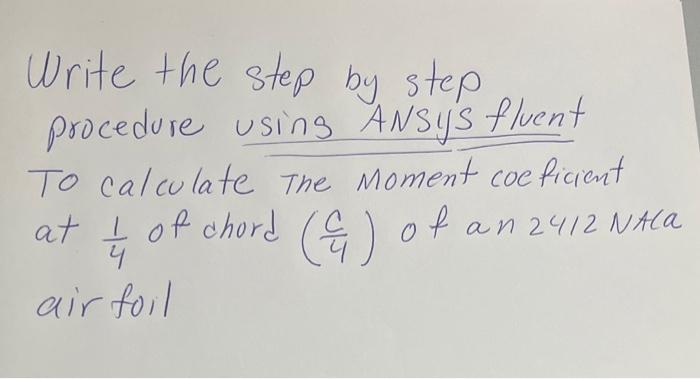 Write the step by step
procedure using ANSYS fluent
To calculate The Moment coeficient
at 1/4 of chord (c/4) of an 2412 NACa
air foil